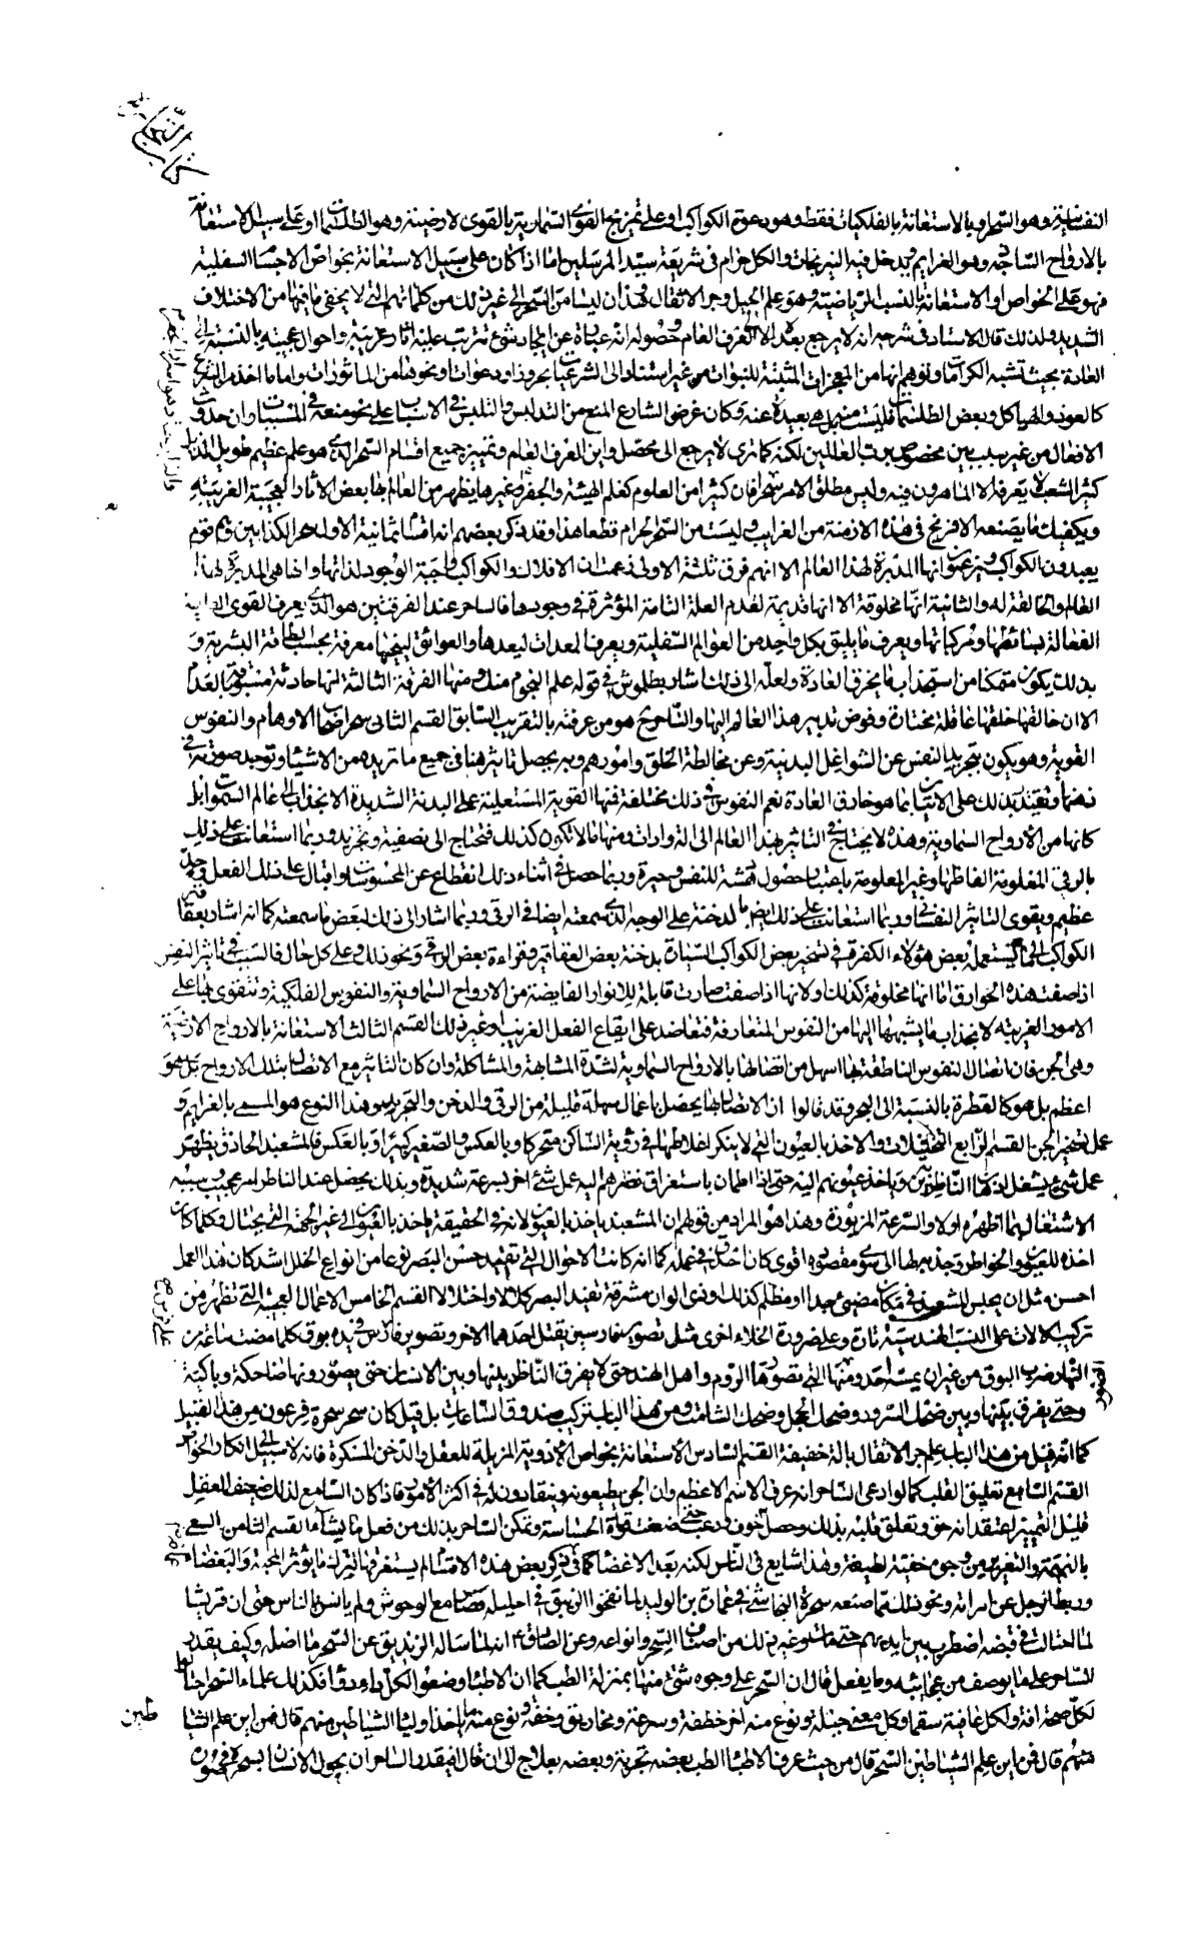 كتاب التجارة
النفسانية وهو السحر او بالاستعانة بالفلكيات فقط وهو دعوة الكواكب او على تمزيج القوى السماوية بالقوى الارضية وهو الطلسمات او على سبيل الاستعانة
بالارواح الساذجة وهو العزايم ويدخل فيه النيرنجات والكل حرام في شريعة سيد المرسلين اما اذا كان على سبيل الاستعانة بخواص الاجسام السفلية
فهو علم الخواص او الاستعانة بالنسب الرياضية وهو علم الحيل وجر الاثقال وهذان ليسا من السحر الى غير ذلك من كلماتهم التي لا يخفى ما فيها من الاختلاف
الشديد ولذلك قال الاستاد في شرحه انه لا يرجع بعد الا الى العرف العام وحصوله انه عبارة عن ايجاد شيء تترتب عليه اثار غريبة واحوال عجيبة بالنسبة الى
العادة بحيث تشبه الكرامات وتوهم انها من المعجزات المثبتة للنبوات من غير استناد الى الشرعيات بحروز او دعوات او نحوها من المأثورات واما ما اخذ من الشرع
كالعوذ والهياكل وبعض الطلسمات فليست منه بل هي بعيدة عنه وكان غرض الشارع المنع من التدليس والتلبيس في الاسباب على نحو منعه في المسببات وان حدوث
الافعال من غير سبب بين مخصوص برب العالمين لكنه كما ترى لا يرجع الى محصل واين العرف العام وتمييز جميع اقسام السحر الذي هو علم عظيم طويل الذيل
كثير الشعب لا يعرفه الا الماهرون فيه وليس مطلق الامر سحرا فان كثيرا من العلوم كعلم الهيئة والجفر وغيرها يظهر من العالم بها بعض الاثار العجيبة الغريبة
ويكفيك ما يصنعه الافرنج في هذه الازمنة من الغرايب وليست من السحر الحرام قطعا هذا وقد ذكر بعضهم انه اقسام ثمانية الاول سحر الكذابين وهم قوم
يعبدون الكواكب ويزعمون انها المدبرة لهذا العالم الا انهم فرق ثلثة الاولى زعمت ان الافلاك والكواكب واجبة الوجود لذاتها وانها هي المدبرة لهذا
العالم والخالقة له والثانية انها مخلوقة الا انها قديمة لقدم العلة التامة المؤثرة في وجودها فالساحر عند الفرقتين هو الذي يعرف القوى العالية
الفعالة بسائطها ومركباتها ويعرف ما يليق بكل واحد من العوالم السفلية ويعرف المعدات ليعدها والعوائق لينحيها معرفة بحسب الطاقة البشرية و
بذلك يكون متمكنا من استجذاب ما يخرق العادة ولعله الى ذلك اشار بطلميوش في قوله علم النجوم منك ومنها الفرقة الثالثة انها حادثة مسبوقة بالعدم
الا ان خالقها خلقها عاقلة مختارة وفوض تدبير هذا العالم اليها والساحر هو من عرفته بالتقريب السابق القسم الثاني سحر اصحاب الاوهام والنفوس
القوية وهو يكون بتجريد النفس عن الشواغل البدنية وعن مخالطة الخلق وامورهم وبه يحصل تاثيرها في جميع ما تريده من الاشياء وتوجيد صورته في
ذهنها وتقتدر بذلك على الاتيان بما هو خارق العادة نعم النفوس في ذلك مختلفة فمنها القوية المستعلية على البدنة الشديدة الانجذاب الى عالم السموات بل
كانها من الارواح السماوية وهذه لا يحتاج في التاثير بهذا العالم الى الة وادات ومنها ما لا تكون كذلك فتحتاج الى تصفية وتجريد وربما استعانت على ذلك
بالرقى المعلومة الفاظها وغير المعلومة باعتبار حصول دهشة للنفس وحيرة وربما حصل في اثناء ذلك انقطاع عن المحسوسات واقبال على ذلك الفعل وجد
عظيم ويقوى التاثير النفساني وربما استعانت على ذلك ايضا بالدخنة على الوجه الذي سمعته ايضا في الرقى وربما اشار الى ذلك لبعض ما سمعته كما انه اشار بعقاقير
الكواكب الى ما يستعمله بعض هؤلاء الكفرة في تسخير بعض الكواكب السيارة بدخنة بعض العقاقير وقراءة بعض الرقى ونحو ذلك وعلى كل حال فالسبب في تاثير النفس
اذا صفت هذه الخوارق اما انها مخلوقة كذلك ولانها اذا صفت صارت قابلة للانوار الفايضة من الارواح السماوية والنفوس الفلكية وتتقوى بها على
الامور الغريبة لانجذاب ما يشبهها اليها من النفوس المتفارقة فتعاضد على ايقاع الفعل الغريب وغير ذلك القسم الثالث الاستعانة بالارواح الارضية
وهي الجن فان اتصال النفوس الناطقة بها اسهل من اتصالها بالارواح السماوية لشدة المشابهة والمشاكلة وان كان التاثير مع الاتصال بتلك الارواح بل هو
اعظم بل هو كالقطرة بالنسبة الى البحر وقد قالوا ان الاتصال بها يحصل باعمال سهلة قليلة من الرقى والدخن والتجريد وهذا النوع هو المسمى بالعزايم و
عمل تسخير الجن القسم الرابع التخيلات والاخذ بالعيون التي لا ينكر اغلاطها في رؤية الساكن متحركا وبالعكس والصغير كبيرا وبالعكس فالمشعبذ الحاذق يظهر
عمل شيء يشغل اذهان الناظرين وياخذ عيونهم اليه حتى اذا اطمان باستغراق نظرهم اليه عمل شيئا اخر بسرعة شديدة وبذلك يحصل عند الناظر امر عجيب سببه
الاشتغال بما اظهره اولا والسرعة المزبورة وهذا هو المراد من قولهم ان المشعبذ ياخذ بالعيون لانه في الحقيقة ياخذ بالعيون الى غير الجهة التي يحتال وكلما كان
اخذه للعيون والخواطر وجذبه بها الى سوى مقصوده اقوى كان احذق في عمله كما انه كانت الاحوال التي تفيد حسن البصر نوعا من انواع الخلل اشد كان هذا العمل
احسن مثل ان يجلس المشعبذ في مكان مضيء جدا او مظلم كذلك او ذي الوان مشرقة تفيد البصر كلالا واختلالا القسم الخامس الاعمال العجيبة التي تظهر من
تركيب الالات على النسب الهندسية تارة وعلى ضرورة الخلاء اخرى مثل تصوير فارسين يقتل احدهما الاخر وتصوير فارس في يده بوق كلما مضت ساعة من
النهار ضرب البوق من غير ان يمسه احد ومنها الصور التي تصورها الروم واهل الهند حتى لا يفرق الناظر بينها وبين الانسان حتى يصورونها ضاحكة وباكية
وحتى يفرق بينها وبين ضحك السرور وضحك الخجل وضحك الشامت ومن هذا الباب تركيب صندوق الساعات بل قيل كان سحر سحرة فرعون من هذا القبيل
كما انه قيل من هذا الباب علم جر الاثقال بالة خفيفة القسم السادس الاستعانة بخواص الادوية المزيلة للعقل والدخن المسكرة فانه لا سبيل الى انكار الخواص
القسم السابع تعليق القلب كما لو ادعى الساحر انه عرف الاسم الاعظم وان الجن يطيعونه وينقادون له في اكثر الامور فاذا كان السامع لذلك ضعيف العقل
قليل التمييز اعتقد انه حق وتعلق قلبه بذلك وحصل خوف ورعب حتى ضعفت قواه الحساسة وتمكن الساحر بذلك من فعل ما يشاء القسم الثامن السعي
بالنميمة والتضريب من وجوه خفية لطيفة وهذا شايع في الناس لكنه بعد الاغضاء عما في ذكر بعض هذه الاقسام لم يستغرقها لترك ما يؤثر المحبة والبغضاء
وربط الرجل عن امراته ونحو ذلك مما صنعه سحرة النجاشي في عمارة بن الوليد لما نفخوا الزيبق في احليله فصار مع الوحوش ولم يانس بالناس حتى ان قريشا
لما احتالت في قبضه اضطرب بين ايديهم حتى مات وغير ذلك من اصناف السحر وانواعه وعن الصادق ع انه لما ساله الزنديق عن السحر ما اصله وكيف يقدر
الساحر على ما يوصف من عجائبه وما يفعل قال ان السحر على وجوه شتى منها بمنزلة الطب كما ان الاطباء وضعوا لكل داء دواء فكذلك علماء السحر احتالوا
لكل صحة افة ولكل عافية سقما ولكل معنى حيلة ونوع منه اخر خطفة وسرعة ومخاريق وخفة ونوع منه ما ياخذ اولياء الشياطين منهم قال فمن اين علم الشياطين
منهم قال فمن اين علم الشياطين السحر قال من حيث عرف الاطباء الطب بعضه تجربة وبعضه بعلاج الى ان قال افيقدر الساحر ان يحول الانسان بسحره في صورة